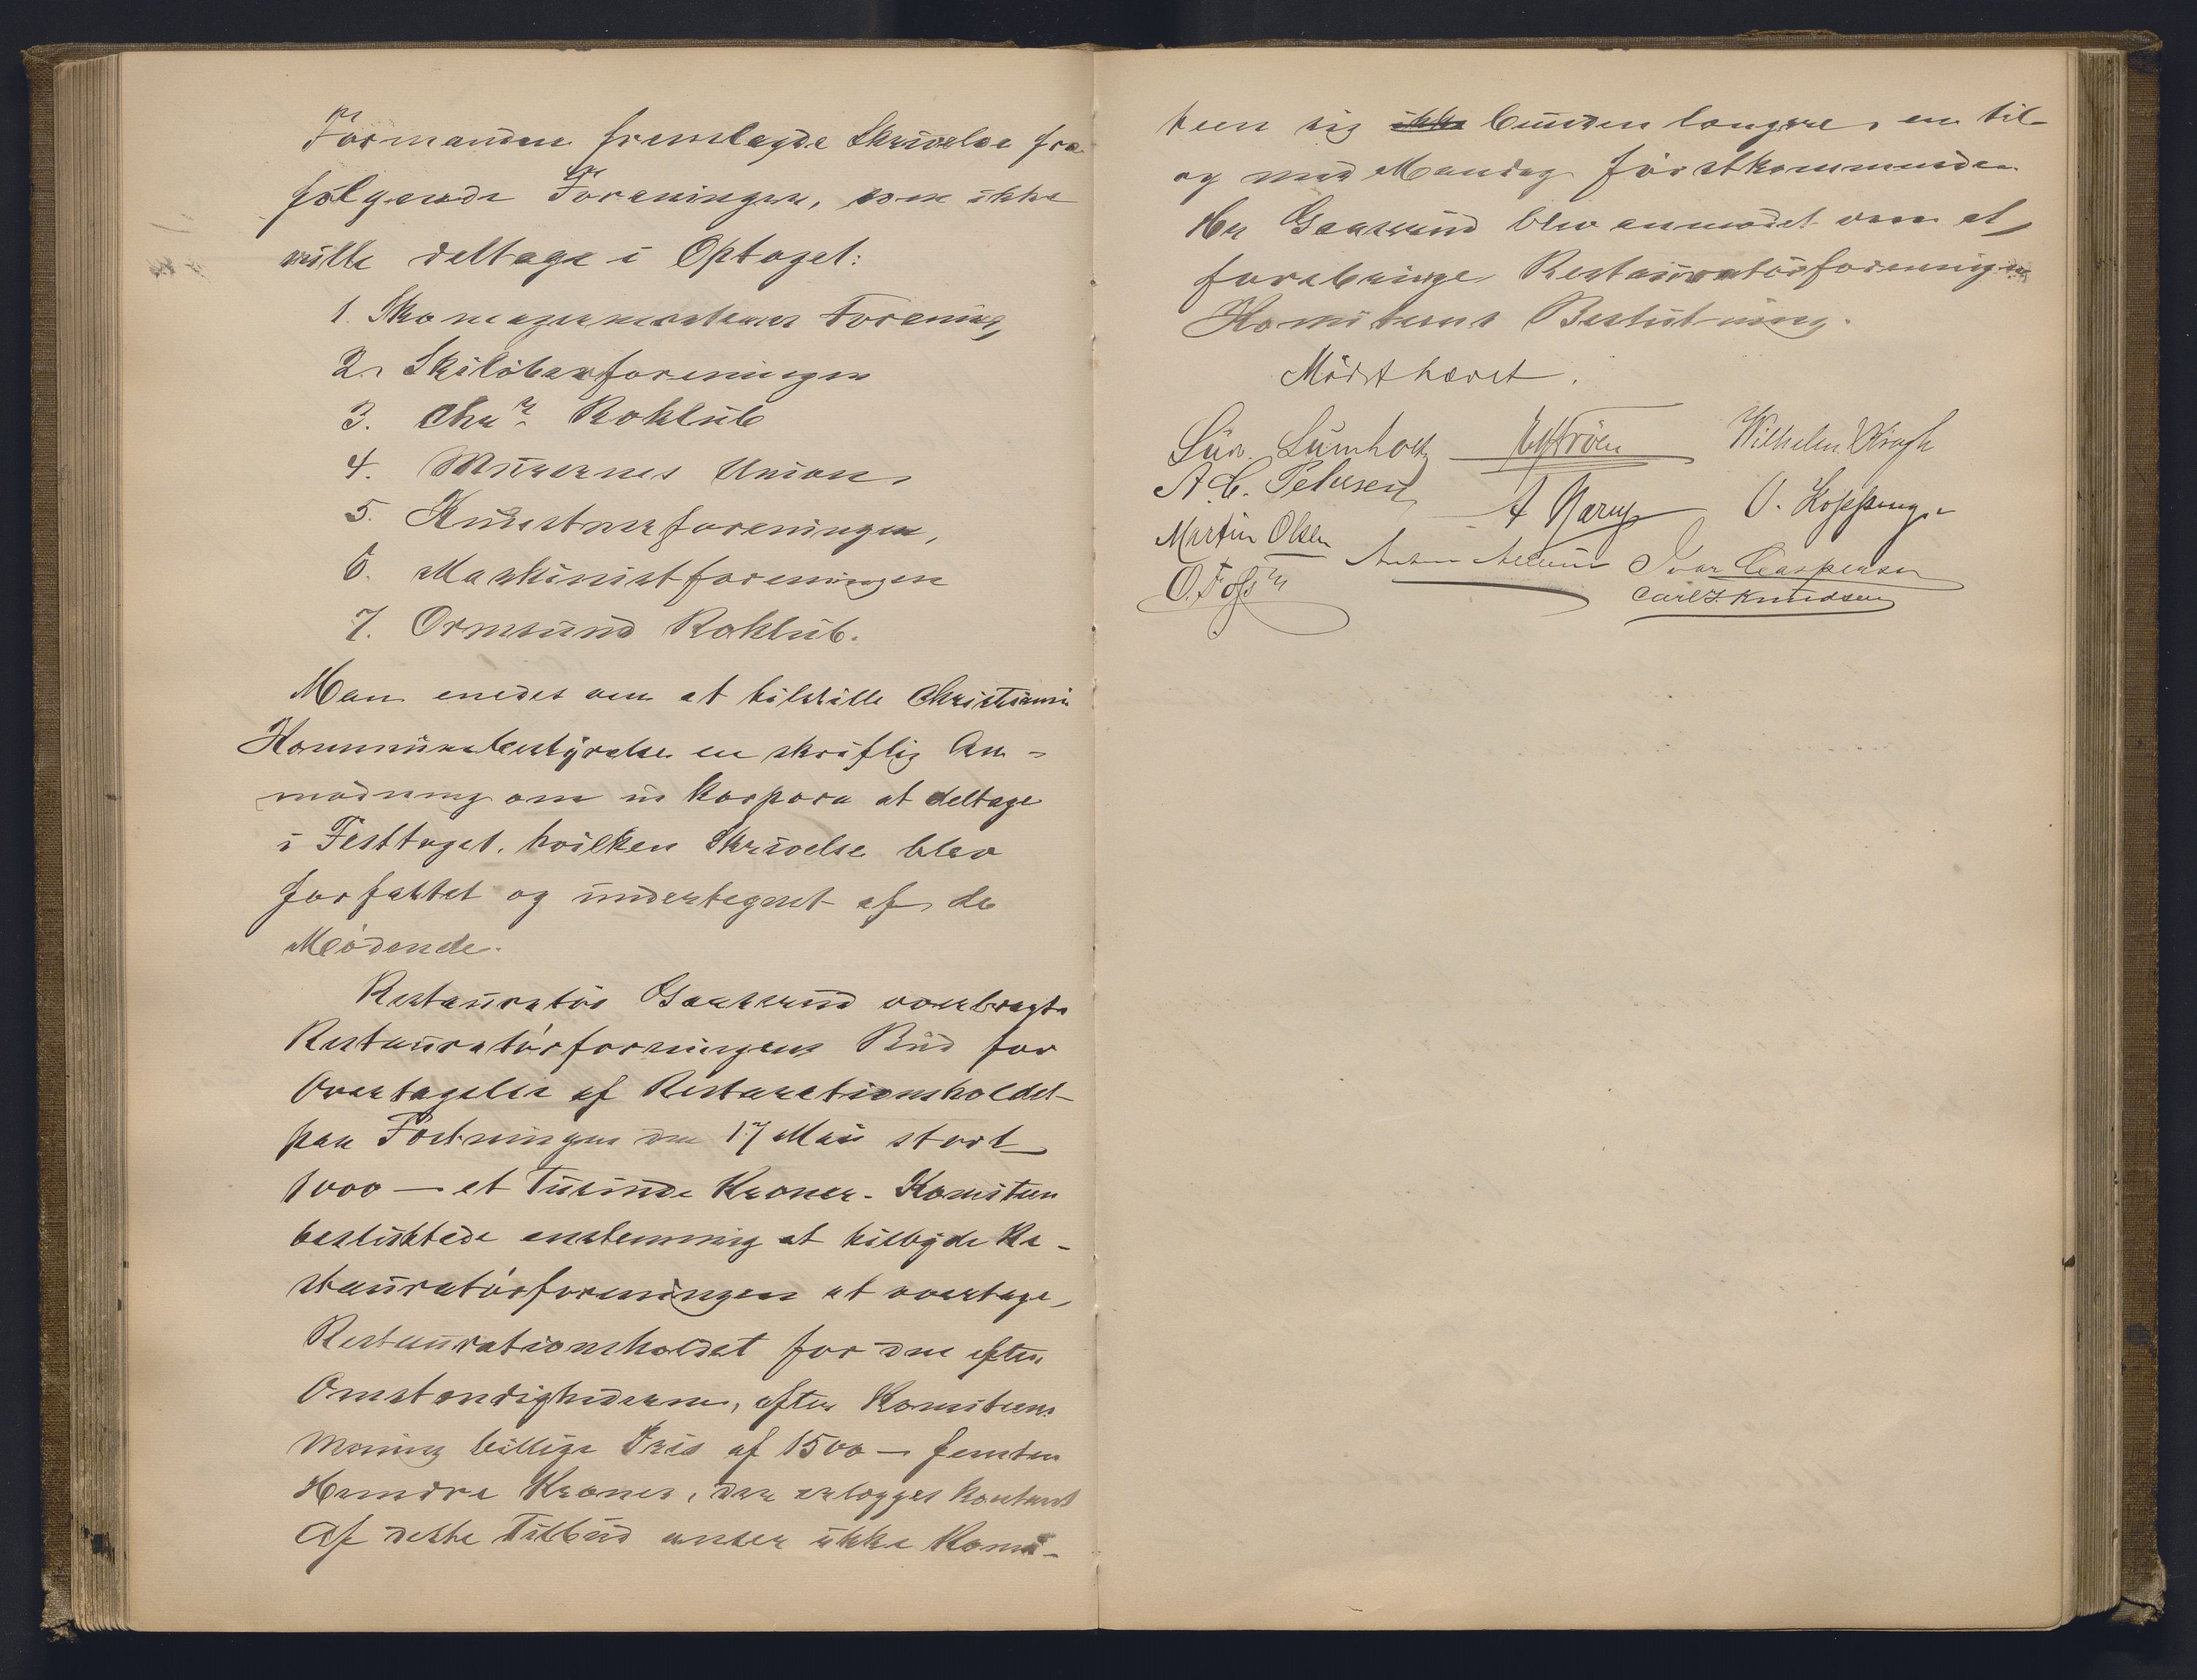 Formanden fremlagde Skrivelse fra
følgende Foreninger, som ikke
vilde deltage i Optoget:
1. Skomagermesternes Forening,
2. Skiløberforeningen
3. Chra Roklub
4. Murernes Union,
5. Kunstnerforeningen,
6. Maskinistforeningen
7. Ormsund Roklub.
Man enedes om at tilstille Christiania
Kommunebestyrelse en skriftlig An-
modning om in korpora at deltage
i Festtoget, hvilken Skrivelse blev
forfattet og undertegnet af de
Mødende.
Restauratør Gaarrud overbragte
Restauratørforeningens Bud for
Overtagelse af Restarationsholdet
paa Fæstningen den 17 Mai stort
1000 — et Tusinde Kroner. Komiteen
besluttede enstemmig at tilbyde Re-
stauratørforeningen at overtage
Restaurationsholdet for den efter
Omstændighederne, efter Komiteens
Mening billige Pris af 1500 — femten
Hundre Kroner, der erlægges kontant
Af dette Tilbud anser ikke Komi-
teen sig ikke bunden længere, en til
og med Mandag førstkommenden.
Hr Gaarrud blev anmodet om at
forebringe Restauratørforeningen
Komiteens Beslutning.
Mødet hævet.
Lumholtz Wilhelm Krogh
A. C. Pettersen A Narup O. Koppang.
Martin Olsen Anton Ivar Caspersen
O. Foss Carl J. Knudsen